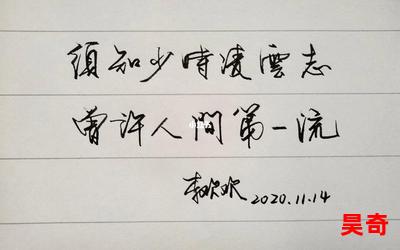 须知少時凌雲志
曾许人間第一流
李欢欢 2020.11.14
昊奇